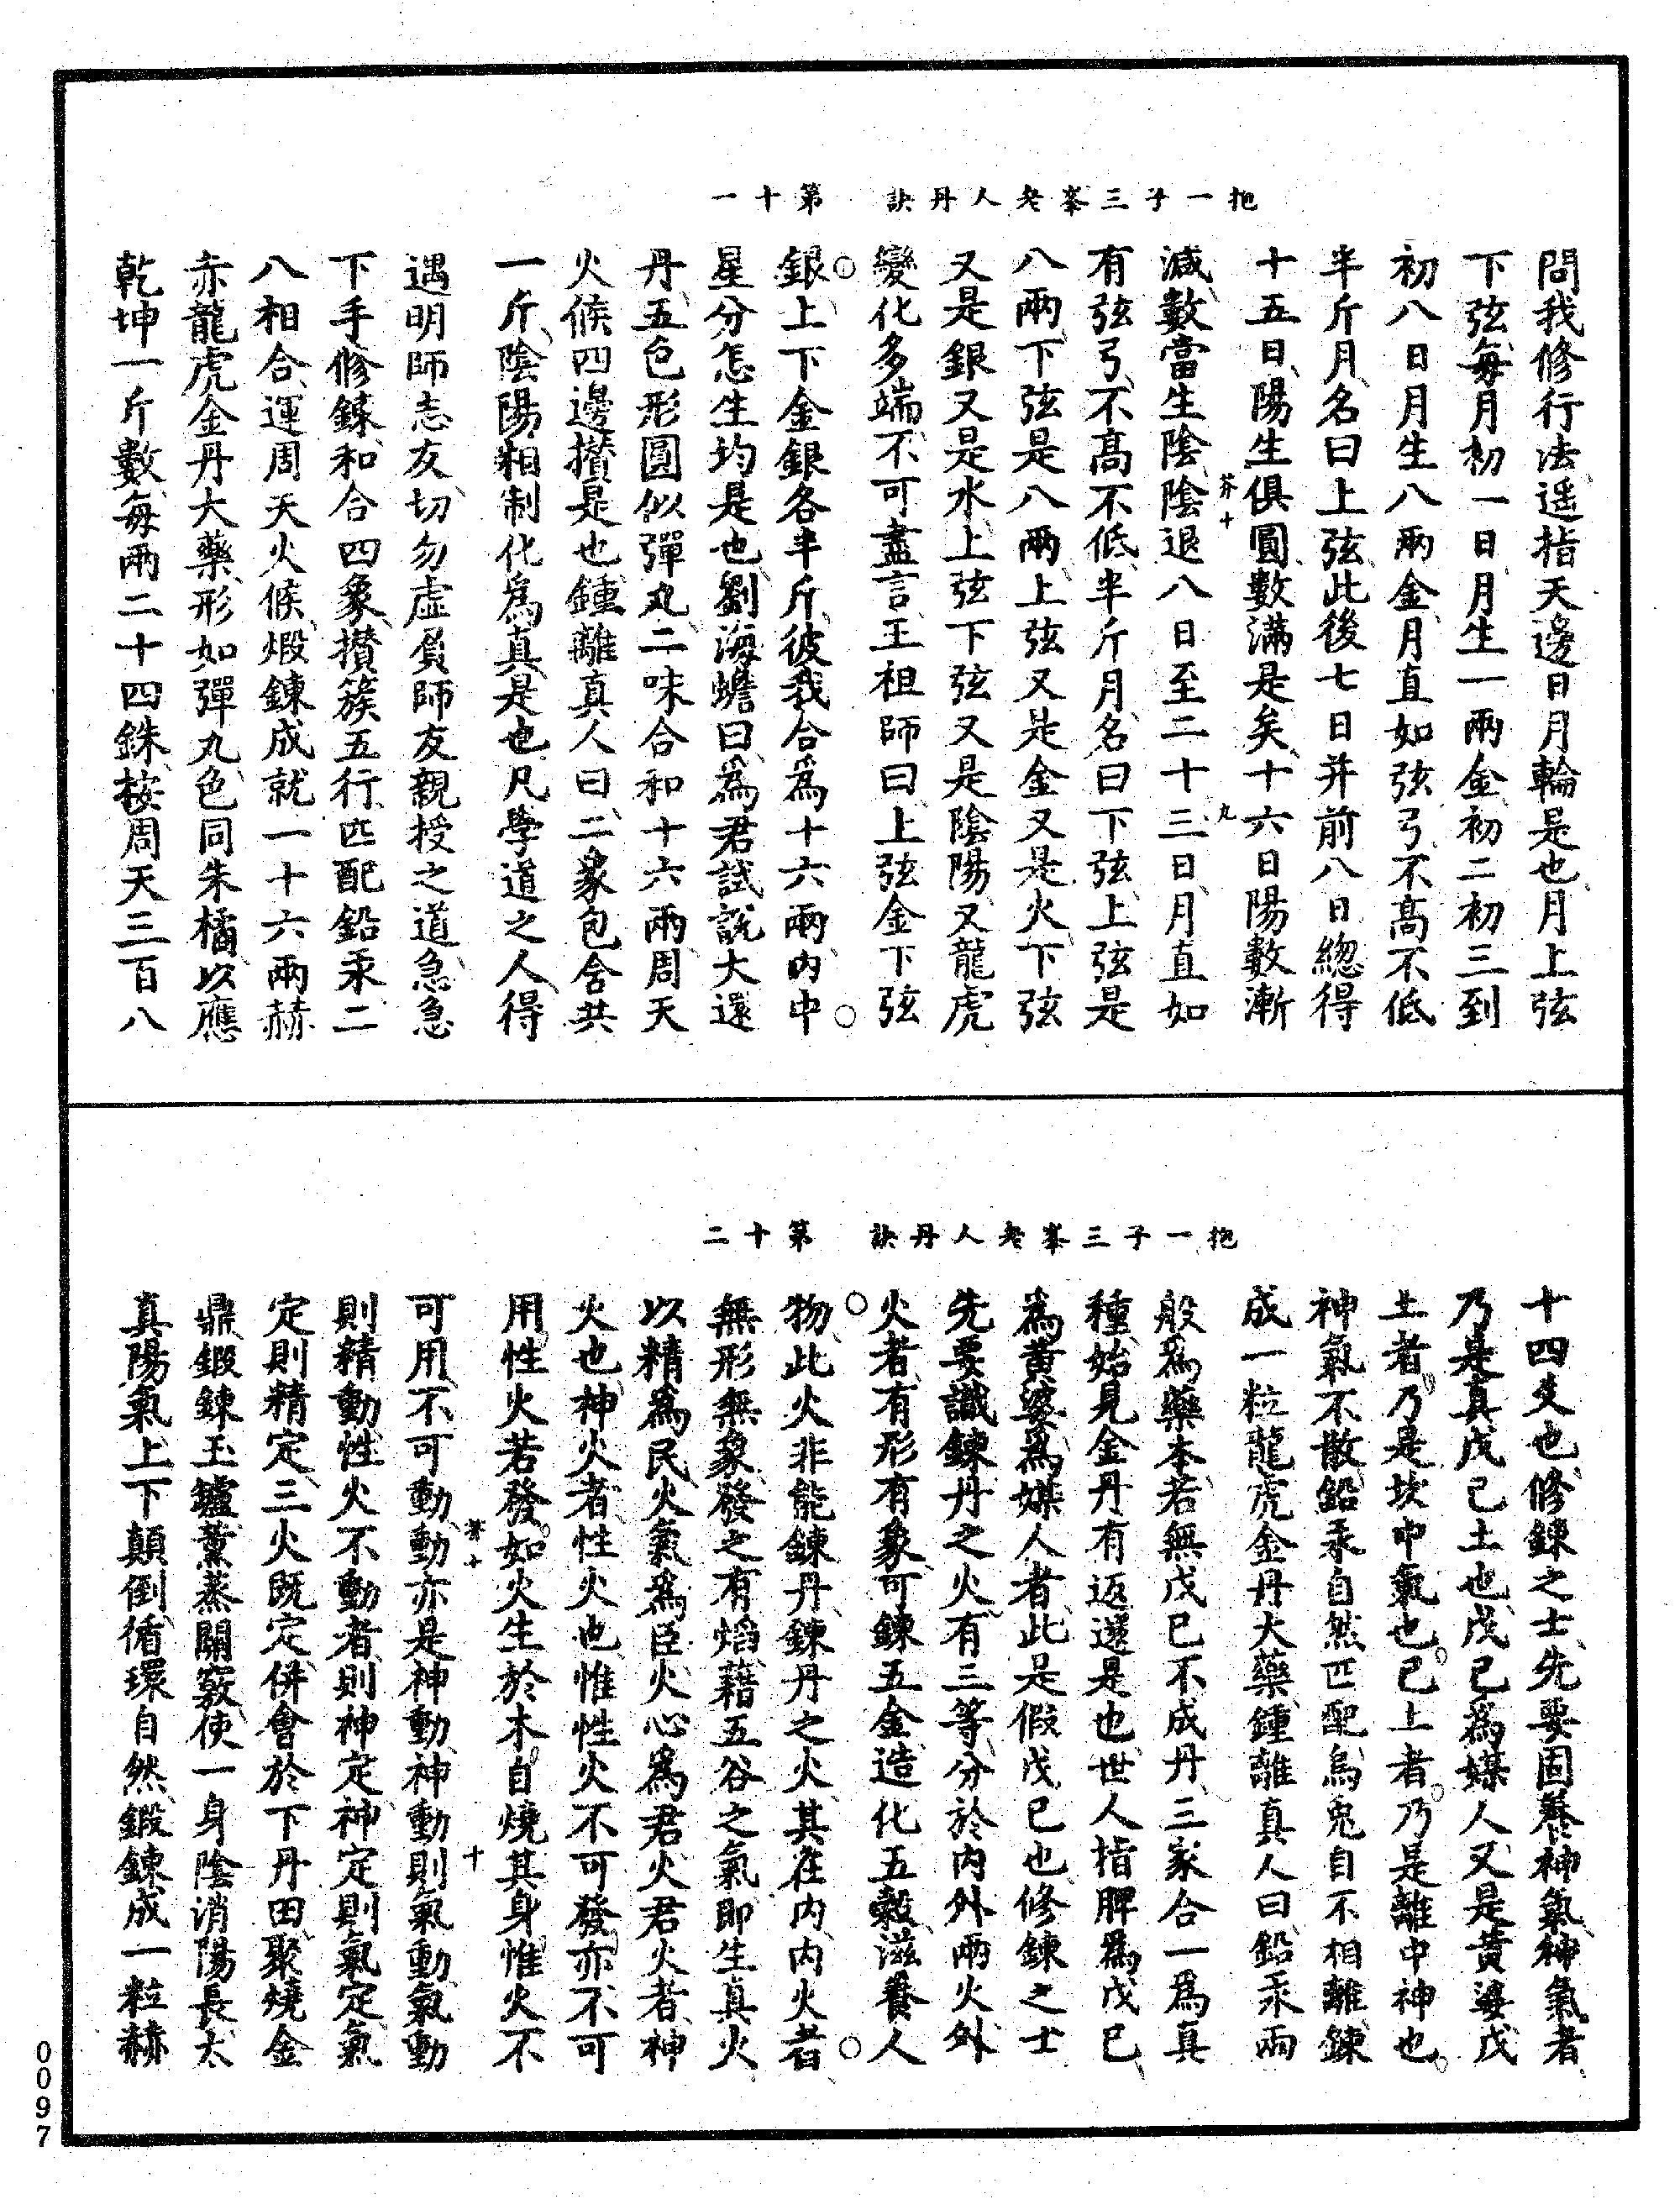 抱一子三峯老人丹訣　第十一
問我修行法遥指天邊日月輪是也月上弦
下弦每月初一日月生一兩金初二初三到
初八日月生八兩金月直如弦弓不高不低
半斤月名曰上弦此後七日并前八日緫得
十五日陽生俱圓數滿是矣十六日陽數漸
芥十　九
減數當生陰陰退八日至二十三日月直如
有弦弓不高不低半斤月名曰下弦上弦是
八兩下弦是八兩上弦又是金又是火下弦
又是銀又是水上弦下弦又是陰陽又龍虎
變化多端不可盡言王祖師曰上弦金下弦
銀上下金銀各半斤彼我合爲十六兩内中
星分怎生均是也劉海蟾曰爲君試說大還
丹五色形圓似彈丸二味合和十六兩周天
火候四邊攢是也鍾離真人曰二象包含共
一斤陰陽相制化爲真是也凡學道之人得
遇明師志友切勿虛負師友親授之道急急
下手修鍊和合四象攢簇五行匹配鉛汞二
八相合運周天火候煅鍊成就一十六兩赫
赤龍虎金丹大藥形如彈丸色同朱橘以應
乾坤一斤數每兩二十四銖按周天三百八
抱一子三峯老人丹訣　第十二
十四爻也修鍊之士先要固養神氣神氣者
乃是真戊己土也戊己爲媒人又是黄婆戊
土者乃是坎中氣也己土者乃是離中神也
神氣不散鉛汞自然匹配烏兎自不相離鍊
成一粒龍虎金丹大藥鍾離真人曰鉛汞兩
般爲藥本若無戊巳不成丹三家合一爲真
種始見金丹有返還是也世人指脾爲戊巳
爲黄婆爲媒人者此是假戊巳也修鍊之士
先要識鍊丹之火有三等分於内外兩火外
火者有形有象可鍊五金造化五穀滋養人
物此火非能鍊丹鍊丹之火其在内内火者
無形無象發之有焰藉五谷之氣即生真火
以精爲民火氣爲臣火心爲君火君火者神
火也神火者性火也惟性火不可發亦不可
用性火若發如火生於木自燒其身惟火不
芥十　十
可用不可動動亦是神動神動則氣動氣動
則精動性火不動者則神定神定則氣定氣
定則精定三火既定併會於下丹田聚燒金
鼎鍛鍊玉鑪薰蒸關竅使一身陰消陽長太
真陽氣上下顛倒循環自然鍛鍊成一粒赫
0097